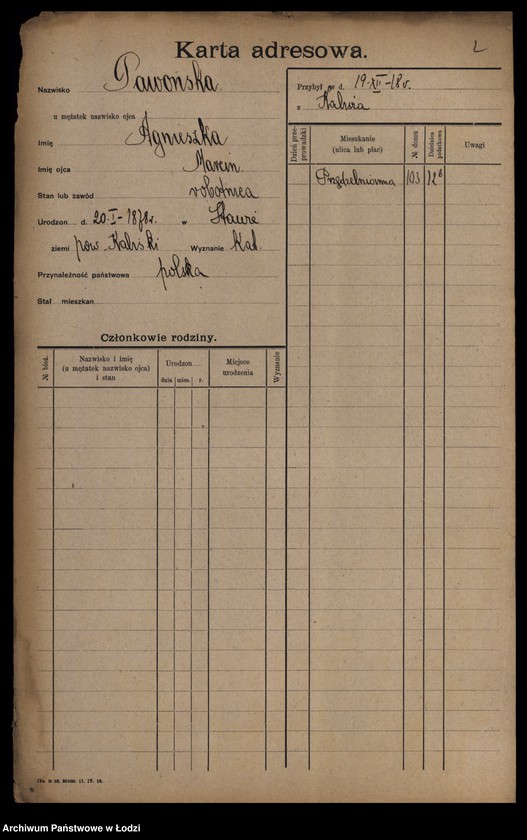 Karta adresowa.
L
Nazwisko Pawońska
u mężatek nazwisko ojca
Imię Agnieszka
Imię ojca Marcin
Stan lub zawód robotnica
Urodzon d. 20-I-1878r. w
ziemi pow. Kaliski Wyznanie Kat.
Przynależność państwowa polska
Stał mieszkan
Przybył d. 19-XII-18r.
z Kalisza
Dzień przeprowadzki
Mieszkanie (ulica lub plac)
№ domu
Dzielnica podatkowa
Uwagi
Przędzalniana 103 12b
Członkowie rodziny.
№ bież.
Nazwisko i imię (u mężatek nazwisko ojca) i stan
Urodzon
dnia mies. r.
Miejsce urodzenia
Wyznanie
Archiwum Państwowe w Łodzi